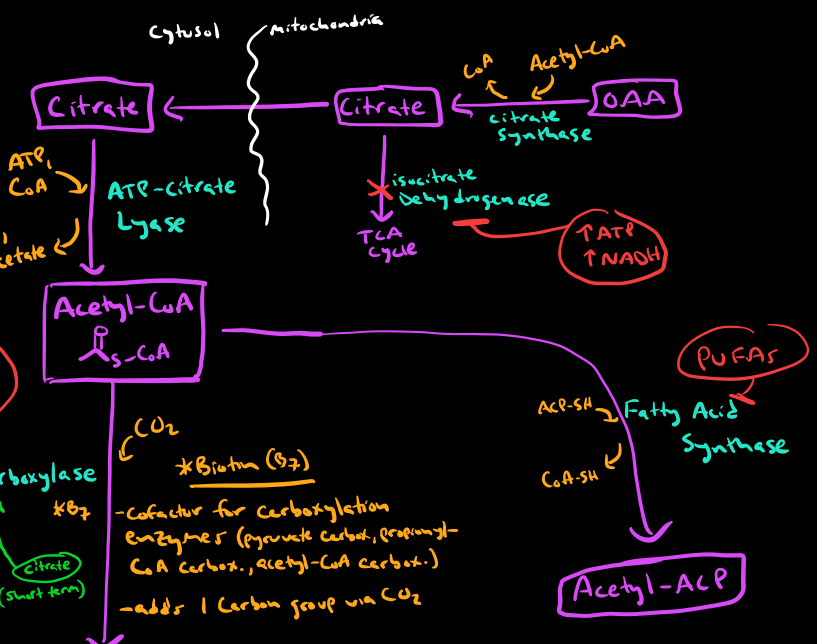 Cytosol
mitochondria
CoA
Acetyl-CoA
Citrate
Citrate
OAA
citrate
synthase
ATP,
CoA
ATP-Citrate
Lyase
isocitrate
Dehydrogenase
TCA
cycle
↑ATP
↑NADH
etate
Acetyl-CoA
S-CoA
PUFAs
ACP-SH
Fatty Acid
Synthase
CoA-SH
CO2
*Biotin (B7)
rboxylase
*B7
-cofactor for carboxylation
enzymes (pyruvate carbox., propionyl-
CoA carbox., acetyl-CoA carbox.)
citrate
(short term)
-adds 1 Carbon group via CO2
Acetyl-ACP